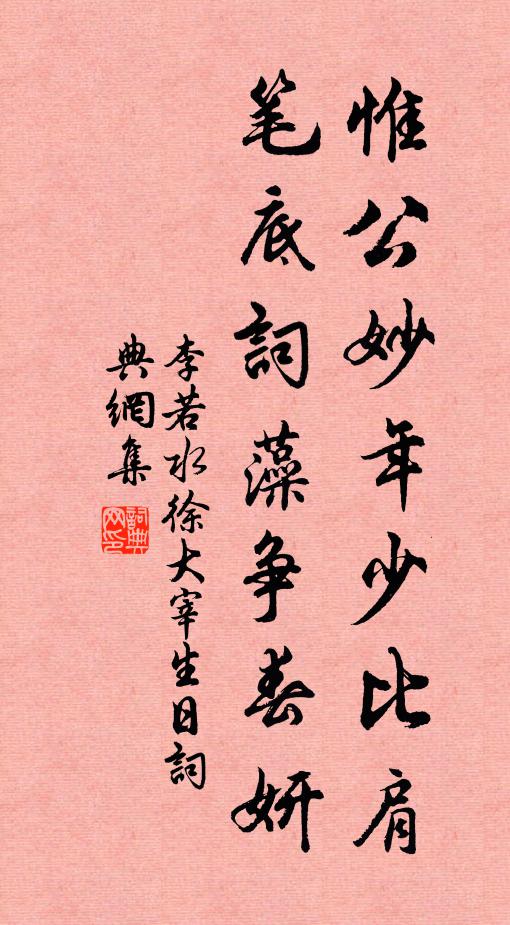 惟公妙年少比肩
笔底詞藻争春妍
李若水徐大宰生日詞
典網集
詞典网印